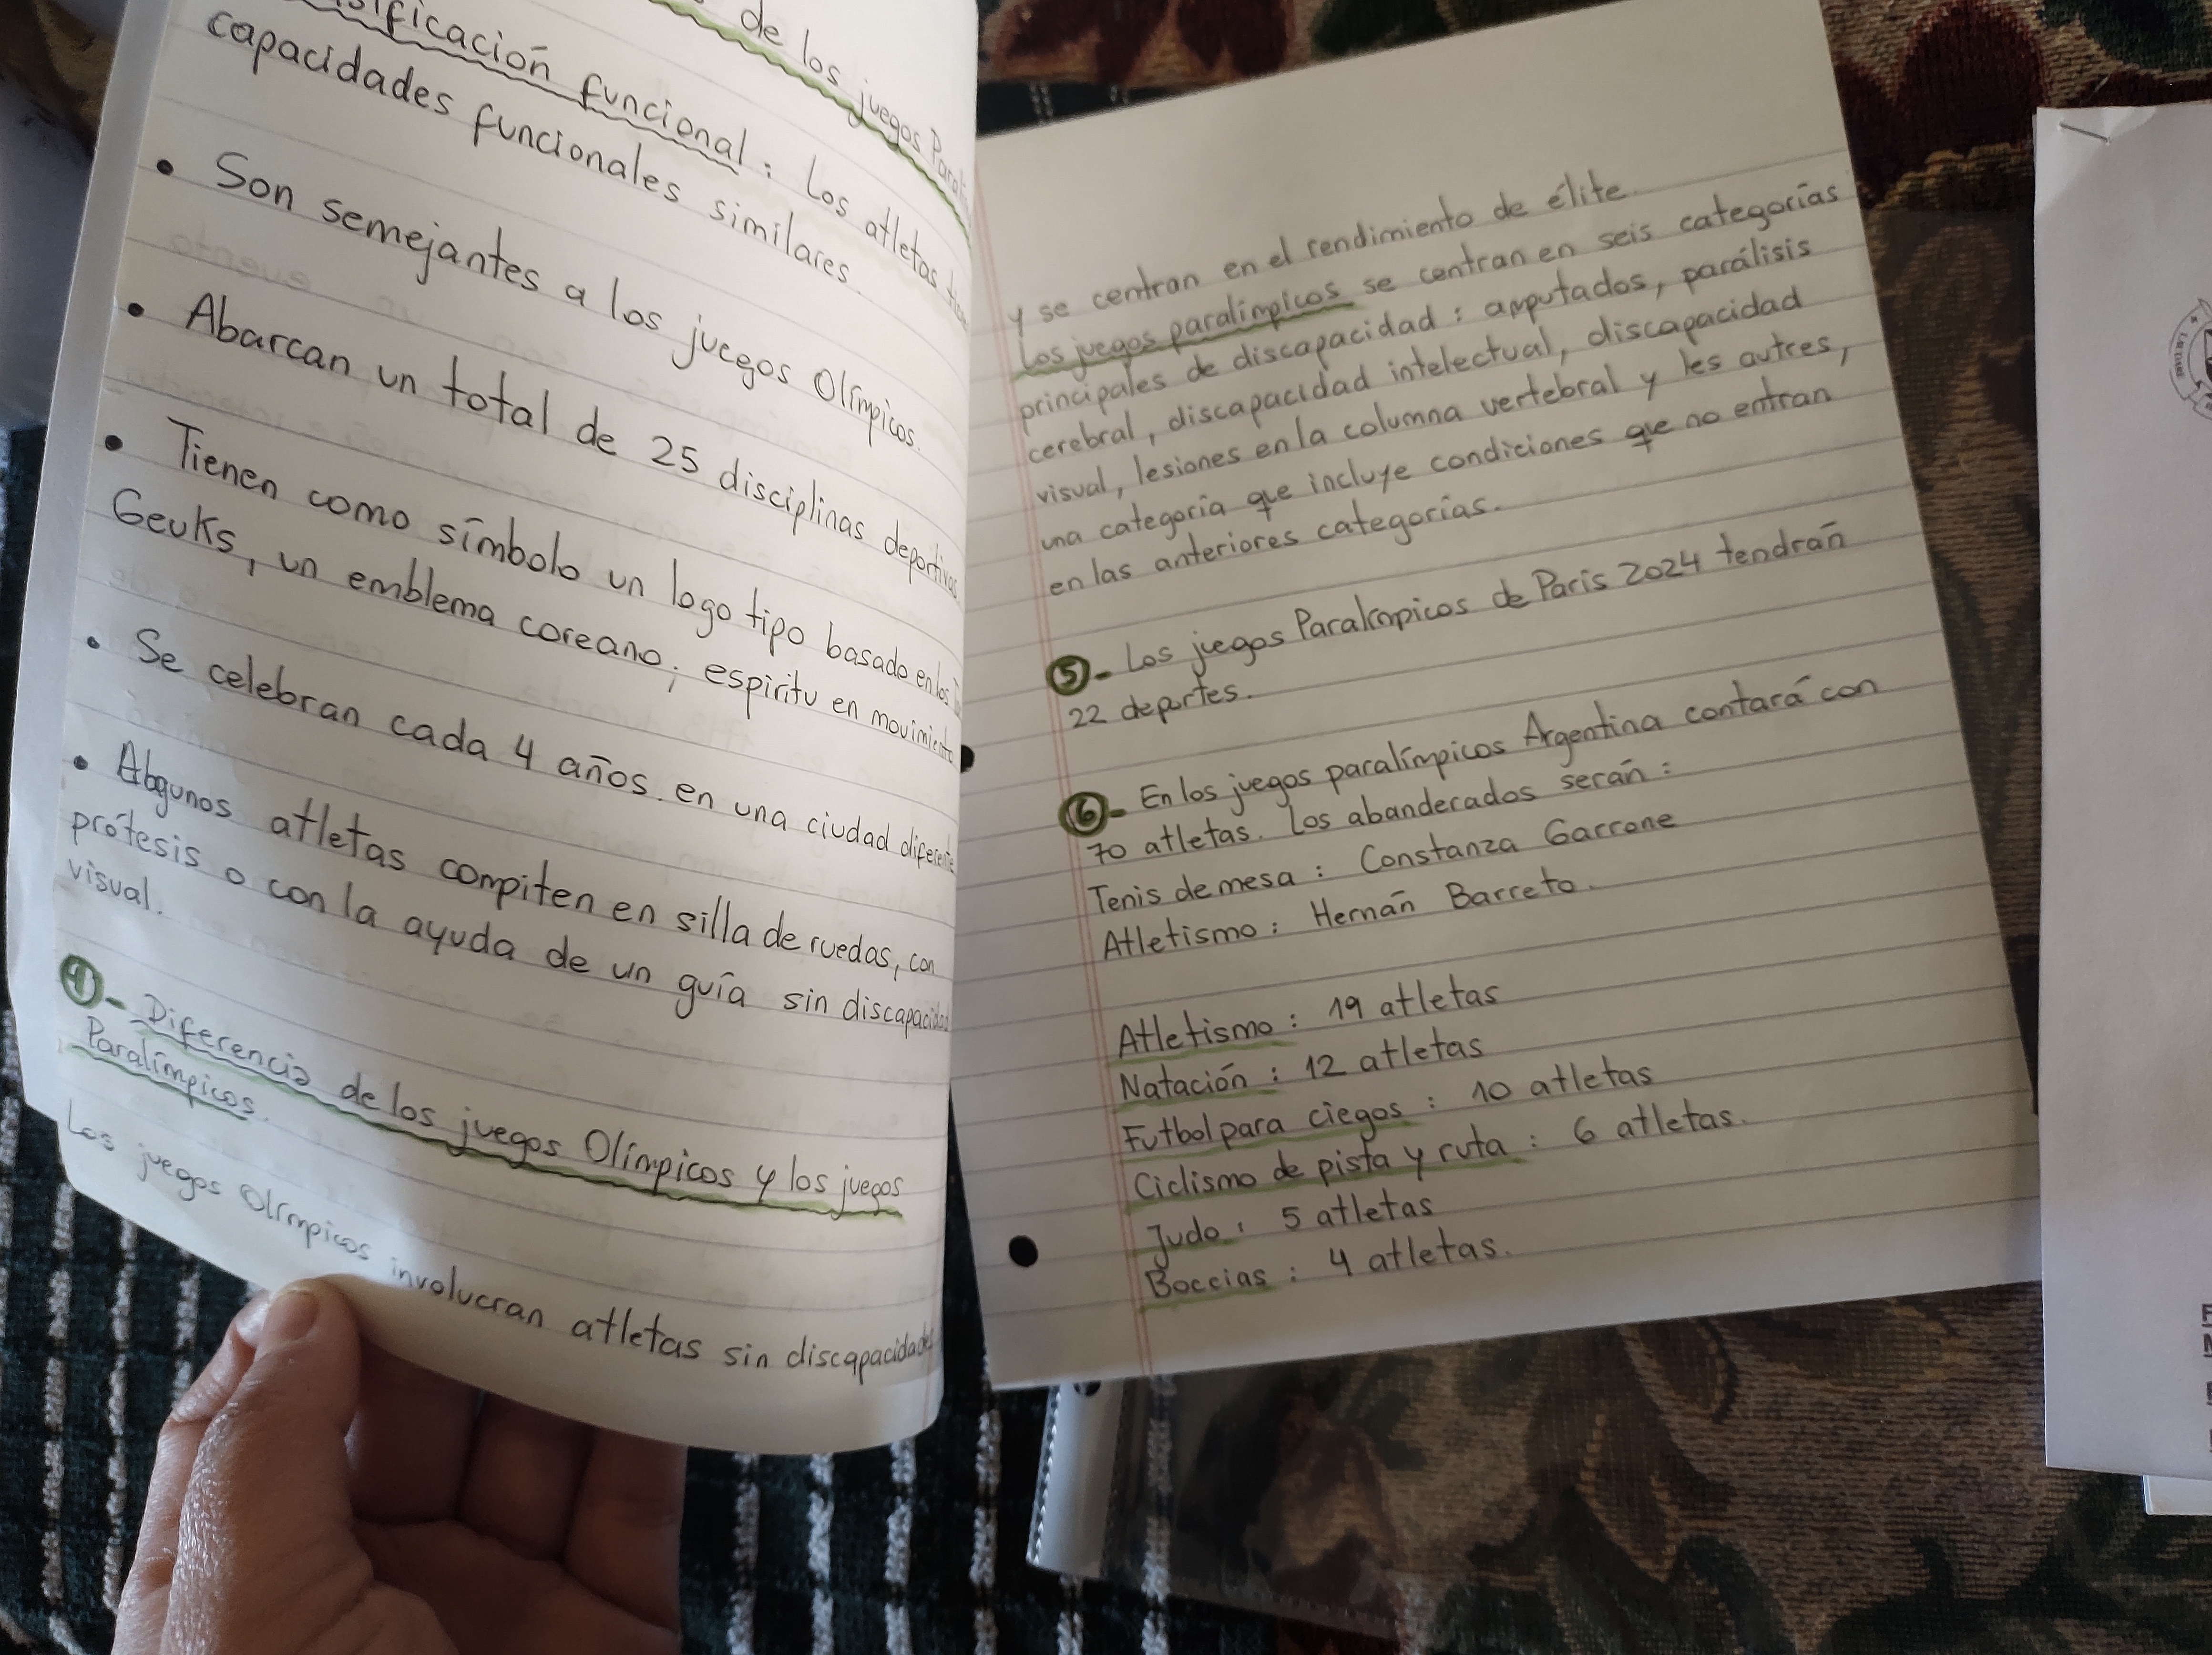 de los juegos
ificación funcional: Los atletas
capacidades funcionales similares.
• Son semejantes a los juegos Olímpicos.
• Abarcan un total de 25 disciplinas deportivas.
• Tienen como símbolo un logo tipo basado en los
Geuks, un emblema coreano; espíritu en movimiento
• Se celebran cada 4 años. en una ciudad diferente
• Abgunos atletas compiten en silla de ruedas, con
prótesis o con la ayuda de un guía sin discapacidad
visual.
4- Diferencia de los juegos Olímpicos y los juegos
Paralímpicos.
Los juegos Olímpicos involucran atletas sin discapacidades
y se centran en el rendimiento de élite.
Los juegos paralímpicos se centran en seis categorías
principales de discapacidad: amputados, parálisis
cerebral, discapacidad intelectual, discapacidad
visual, lesiones en la columna vertebral y les autres,
una categoría que incluye condiciones que no entran
en las anteriores categorías.
5- Los juegos Paralímpicos de París 2024 tendrán
22 deportes.
6- En los juegos paralímpicos Argentina contará con
70 atletas. Los abanderados serán:
Tenis de mesa: Constanza Garrone
Atletismo: Hernán Barreto.
Atletismo: 19 atletas
Natación: 12 atletas
Futbol para ciegos: 10 atletas
Ciclismo de pista y ruta: 6 atletas.
Judo: 5 atletas
Boccias: 4 atletas.